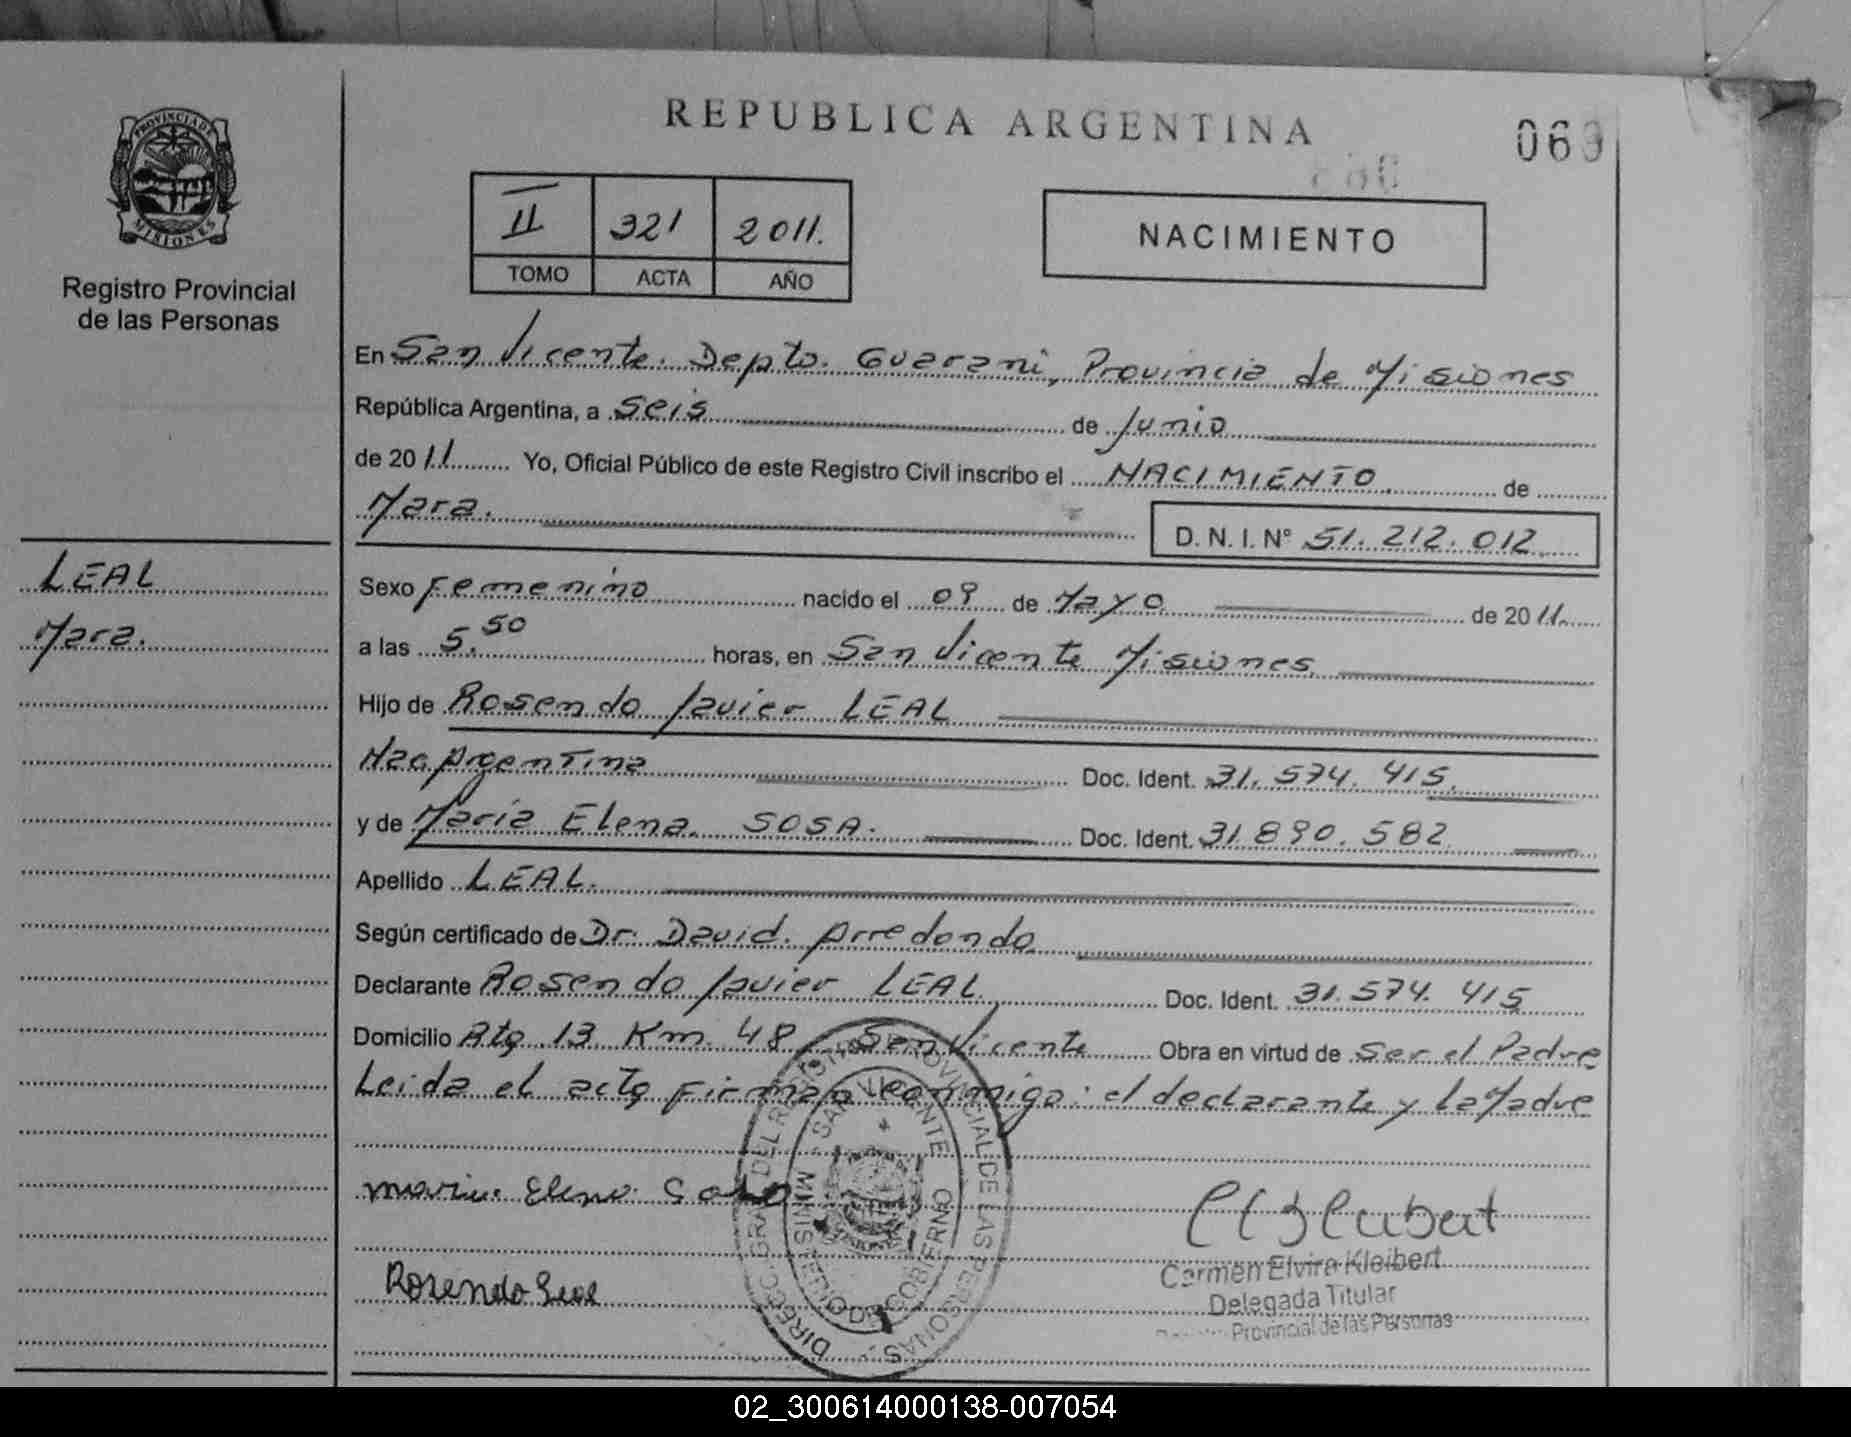 REPUBLICA ARGENTINA
069
PROVINCIA DE
MISIONES
Registro Provincial
de las Personas
II 321 2011.
TOMO ACTA AÑO
NACIMIENTO
En San Vicente. Depto. Guarani, Provincia de Misiones
República Argentina, a seis de Junio
de 2011 Yo, Oficial Público de este Registro Civil inscribo el NACIMIENTO. de
Mara.
D. N. I. Nº 51.212.012
LEAL
Mara.
Sexo Femenino nacido el 09 de Mayo de 2011.
a las 5.50 horas, en San Vicente Misiones
Hijo de Rosendo Javier LEAL
Nac. Argentina Doc. Ident. 31.574.415.
y de María Elena SOSA. Doc. Ident. 31.890.582
Apellido LEAL.
Según certificado de Dr. David. Arredondo
Declarante Rosendo Javier LEAL Doc. Ident. 31.574.415
Domicilio Rta 13 Km. 48 San Vicente Obra en virtud de Ser el Padre
Leida el acta Firman conmigo: el declarante y la Madre
DIREC. GRAL. DEL REGISTRO PROVINCIAL DE LAS PERSONAS
SAN VICENTE
MINISTERIO DE GOBIERNO
MISIONES
Maria Elena Sosa
Rosendo Leal
Carmen Elvira Kleibert
Delegada Titular
Provincial de las Personas
02_300614000138-007054